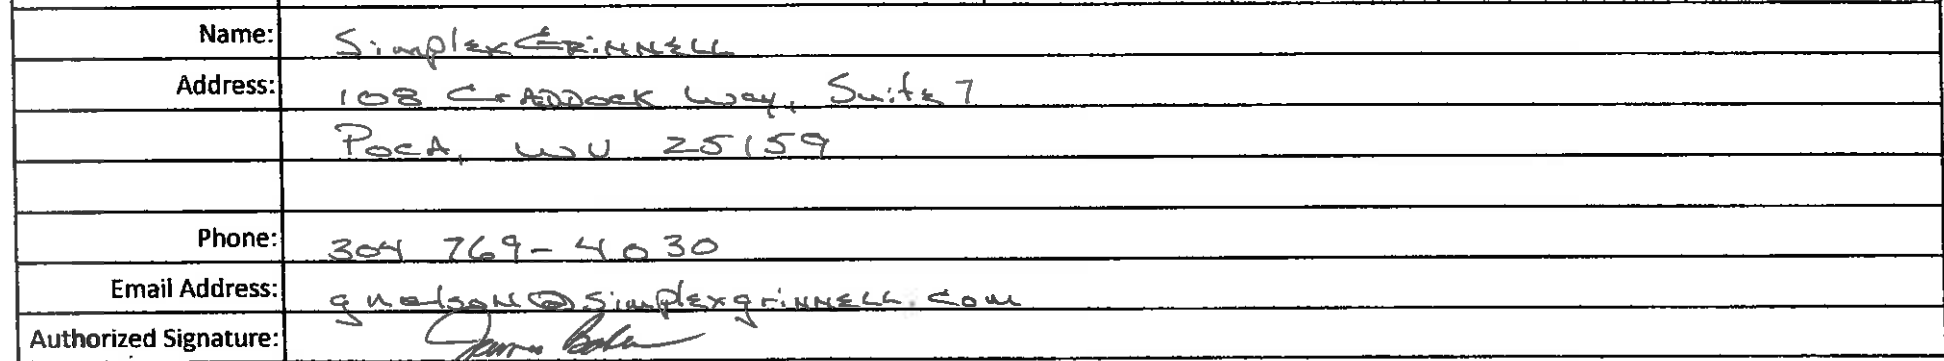 Name: SimplexGrinnell
Address: 108 Craddock Way, Suite 7
Poca, WV 25159
Phone: 304 769-4030
Email Address: gnelson@simplexgrinnell.com
Authorized Signature: